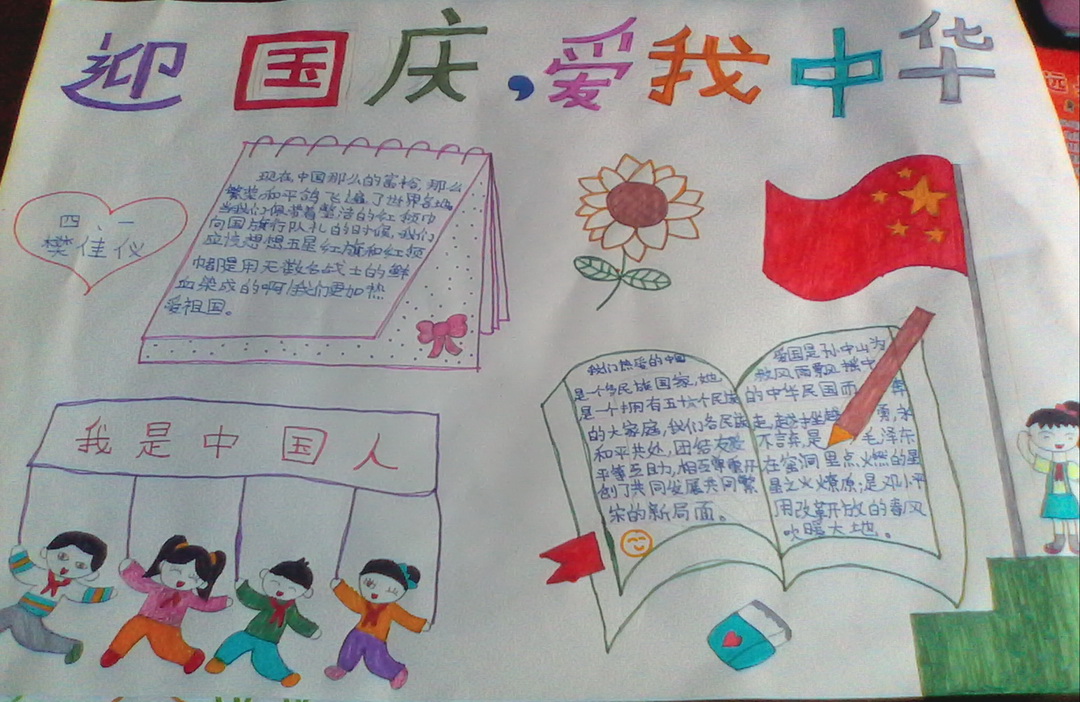 迎国庆,爱我中华
四、一
樊佳仪
现在中国那么的富裕,那么
繁荣和平鸽飞遍了世界各地
当我们佩带着整洁的红领巾
向国旗行队礼的时候,我们
应该想想五星红旗和红领
巾都是用无数名战士的鲜
血染成的啊!我们更加热
爱祖国。
我们热爱的中国
是一个多民族国家,她
是一个拥有五十六个民族
的大家庭,我们各民族
和平共处,团结友好
平等互助,相互尊重开
创了共同发展共同繁
荣的新局面。
爱国是孙中山为
救风雨飘摇中
的中华民国而奔
走,越挫越勇,永
不言弃,是毛泽东
在窑洞里点火燃的星
星之火燎原;是邓小平
用改革开放的春风
吹暖大地。
我是中国人